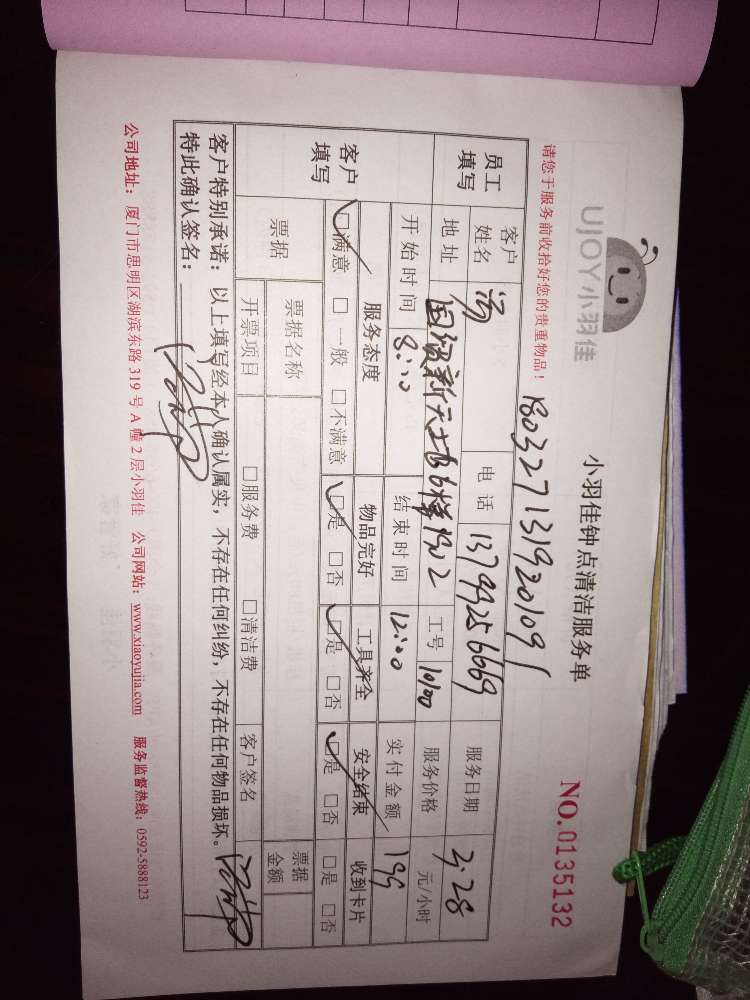 UJOY小羽佳
小羽佳钟点清洁服务单
NO.0135132
请您于服务前收拾好您的贵重物品!
员工填写 客户姓名 汤 电话 13799256669 服务日期 3.28
地址 国贸新天地 1302 工号 10100 服务价格 元/小时
开始时间 8:00 结束时间 12:00 实付金额 199
客户填写 服务态度 物品完好 工具齐全 安全结束 收到卡片
□满意 □一般 □不满意 □是 □否 □是 □否 □是 □否 □是 □否
票据 票据名称 票据金额
开票项目 □服务费 □清洁费 客户签名
客户特别承诺:以上填写经本人确认属实,不存在任何纠纷,不存在任何物品损坏。
特此确认签名:
公司地址:厦门市思明区湖滨东路319号A幢2层小羽佳 公司网站:www.xiaoyujia.com 服务监督热线:0592-5888123